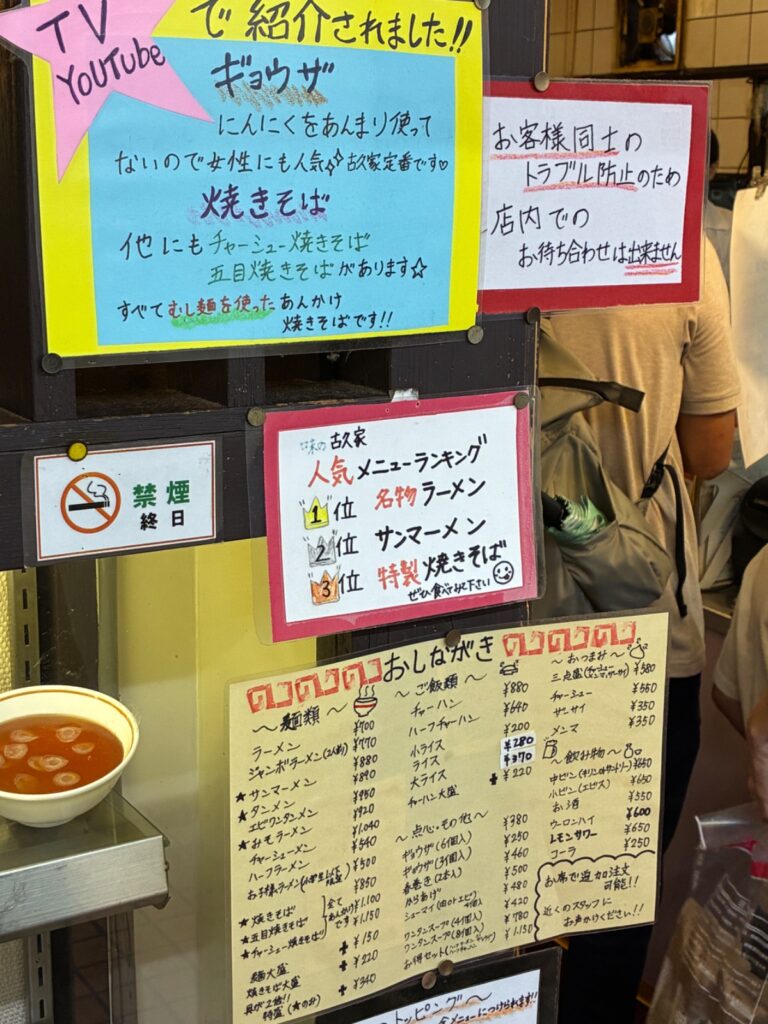 TV
YouTube
で紹介されました!!
ギョウザ
にんにくをあんまり使って
ないので女性にも人気 古久家定番です♡
焼きそば
他にもチャーシュー焼きそば
五目焼きそばがあります☆
すべてむし麺を使ったあんかけ
焼きそばです!!
お客様同士の
トラブル防止のため
店内での
お待ち合わせは出来ません
禁煙
終日
味の古久家
人気メニューランキング
1位 名物ラーメン
2位 サンマーメン
3位 特製焼きそば
ぜひ食べてみて下さい
おしながき
〜麺類〜
ラーメン ¥700
ジャンボラーメン(2人前) ¥770
★サンマーメン ¥880
★タンメン ¥890
エビワンタンメン ¥950
★おモラーメン ¥920
チャーシューメン ¥1,040
ハーフラーメン ¥540
お子様ラーメン ¥500
★焼きそば ¥850
★五目焼きそば ¥1,100
★チャーシュー焼きそば ¥1,150
全て
あんかけ
です
麺大盛 +¥150
焼きそば大盛 +¥220
具が2倍!!
特盛(★のみ) +¥340
〜ご飯類〜
チャーハン ¥880
ハーフチャーハン ¥640
小ライス ¥200
ライス ¥280
大ライス ¥370
チャーハン大盛 +¥220
〜点心・その他〜
ギョウザ(6個入) ¥380
ギョウザ(3個入) ¥250
春巻き(2本入) ¥460
からあげ ¥500
シューマイ(肉orエビ4個入) ¥480
ワンタンスープ(4個入) ¥420
ワンタンスープ(8個入) ¥780
お得セット ¥1,150
〜おつまみ〜
三点盛 ¥580
チャーシュー ¥550
ザーサイ ¥350
メンマ ¥350
〜飲み物〜
中ビン(キリンorサントリー) ¥650
小ビン(エビス) ¥650
お酒 ¥550
ウーロンハイ ¥600
レモンサワー ¥650
コーラ ¥250
お席で追加注文
可能!!
近くのスタッフに
お声かけください!!
トッピング〜
メニューにつけられます!!